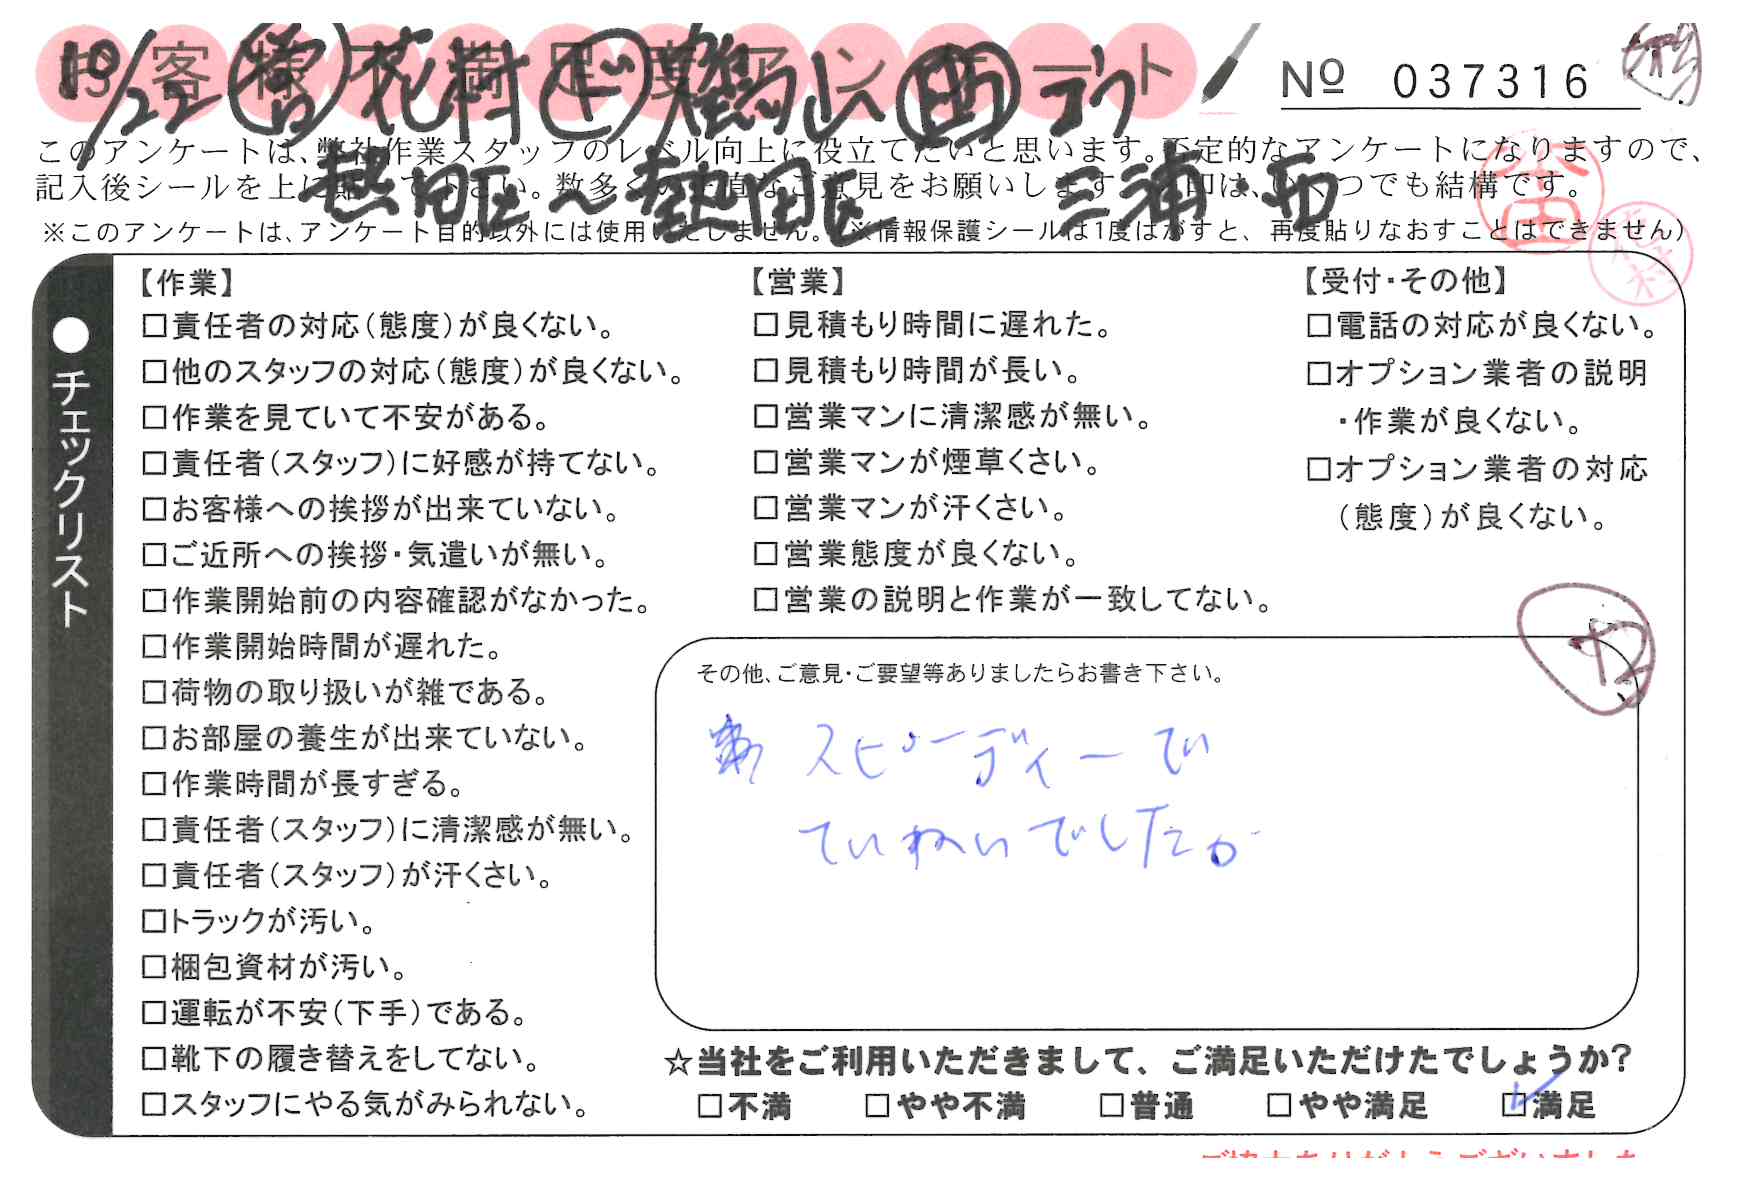 お客様不満足度アンケート
No 037316
10/22 営 花村 ド 鶴山 西 テウ
熱田区〜熱田区 三浦・西
このアンケートは、弊社作業スタッフのレベル向上に役立てたいと思います。否定的なアンケートになりますので、
記入後シールを上に貼って下さい。数多くの正直なご意見をお願いします。印は、いくつでも結構です。
※このアンケートは、アンケート目的以外には使用いたしません。(※情報保護シールは1度はがすと、再度貼りなおすことはできません)
花村
●チェックリスト
【作業】
□責任者の対応(態度)が良くない。
□他のスタッフの対応(態度)が良くない。
□作業を見ていて不安がある。
□責任者(スタッフ)に好感が持てない。
□お客様への挨拶が出来ていない。
□ご近所への挨拶・気遣いが無い。
□作業開始前の内容確認がなかった。
□作業開始時間が遅れた。
□荷物の取り扱いが雑である。
□お部屋の養生が出来ていない。
□作業時間が長すぎる。
□責任者(スタッフ)に清潔感が無い。
□責任者(スタッフ)が汗くさい。
□トラックが汚い。
□梱包資材が汚い。
□運転が不安(下手)である。
□靴下の履き替えをしてない。
□スタッフにやる気がみられない。
【営業】
□見積もり時間に遅れた。
□見積もり時間が長い。
□営業マンに清潔感が無い。
□営業マンが煙草くさい。
□営業マンが汗くさい。
□営業態度が良くない。
□営業の説明と作業が一致してない。
【受付・その他】
□電話の対応が良くない。
□オプション業者の説明
・作業が良くない。
□オプション業者の対応
(態度)が良くない。
その他、ご意見・ご要望等ありましたらお書き下さい。
スピーディーでい
ていねいでした。
☆当社をご利用いただきまして、ご満足いただけたでしょうか?
□不満 □やや不満 □普通 □やや満足 ☑満足
ご協力ありがとうございました